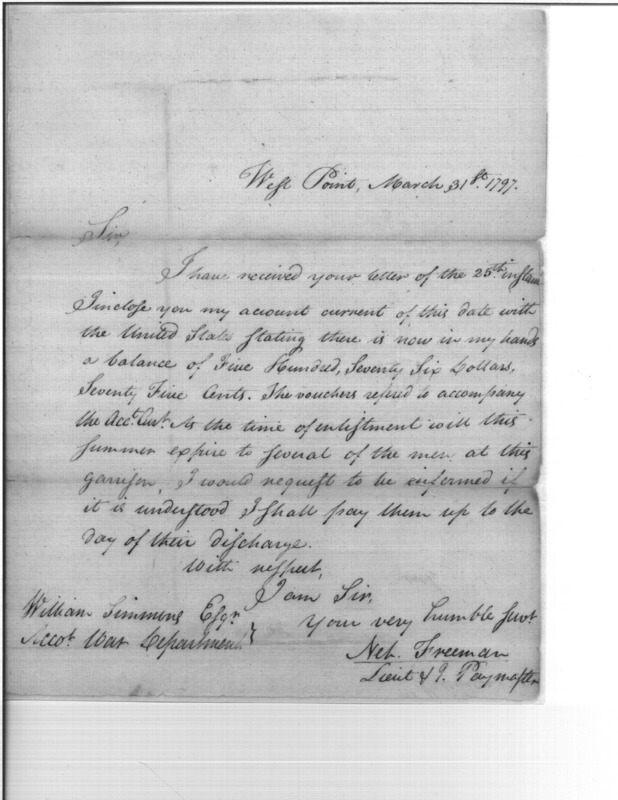 West Point, March 31st. 1797.
Sir,
I have received your letter of the 25th. instan
I inclose you my account current of this date with
the United States stating there is now in my hands
a balance of Five Hundred, Seventy Six Dollars,
Seventy Five Cents. The vouchers refered to accompany
the Acct. Curt. As the time of enlistment will this
summer expire to several of the men at this
garrison, I would request to be informed if
it is understood I shall pay them up to the
day of their discharge.
With respect,
I am Sir,
Your very humble Servt
William Simmons Esqr.
Accot. War Department
Neh. Freeman
Lieut & Paymaster